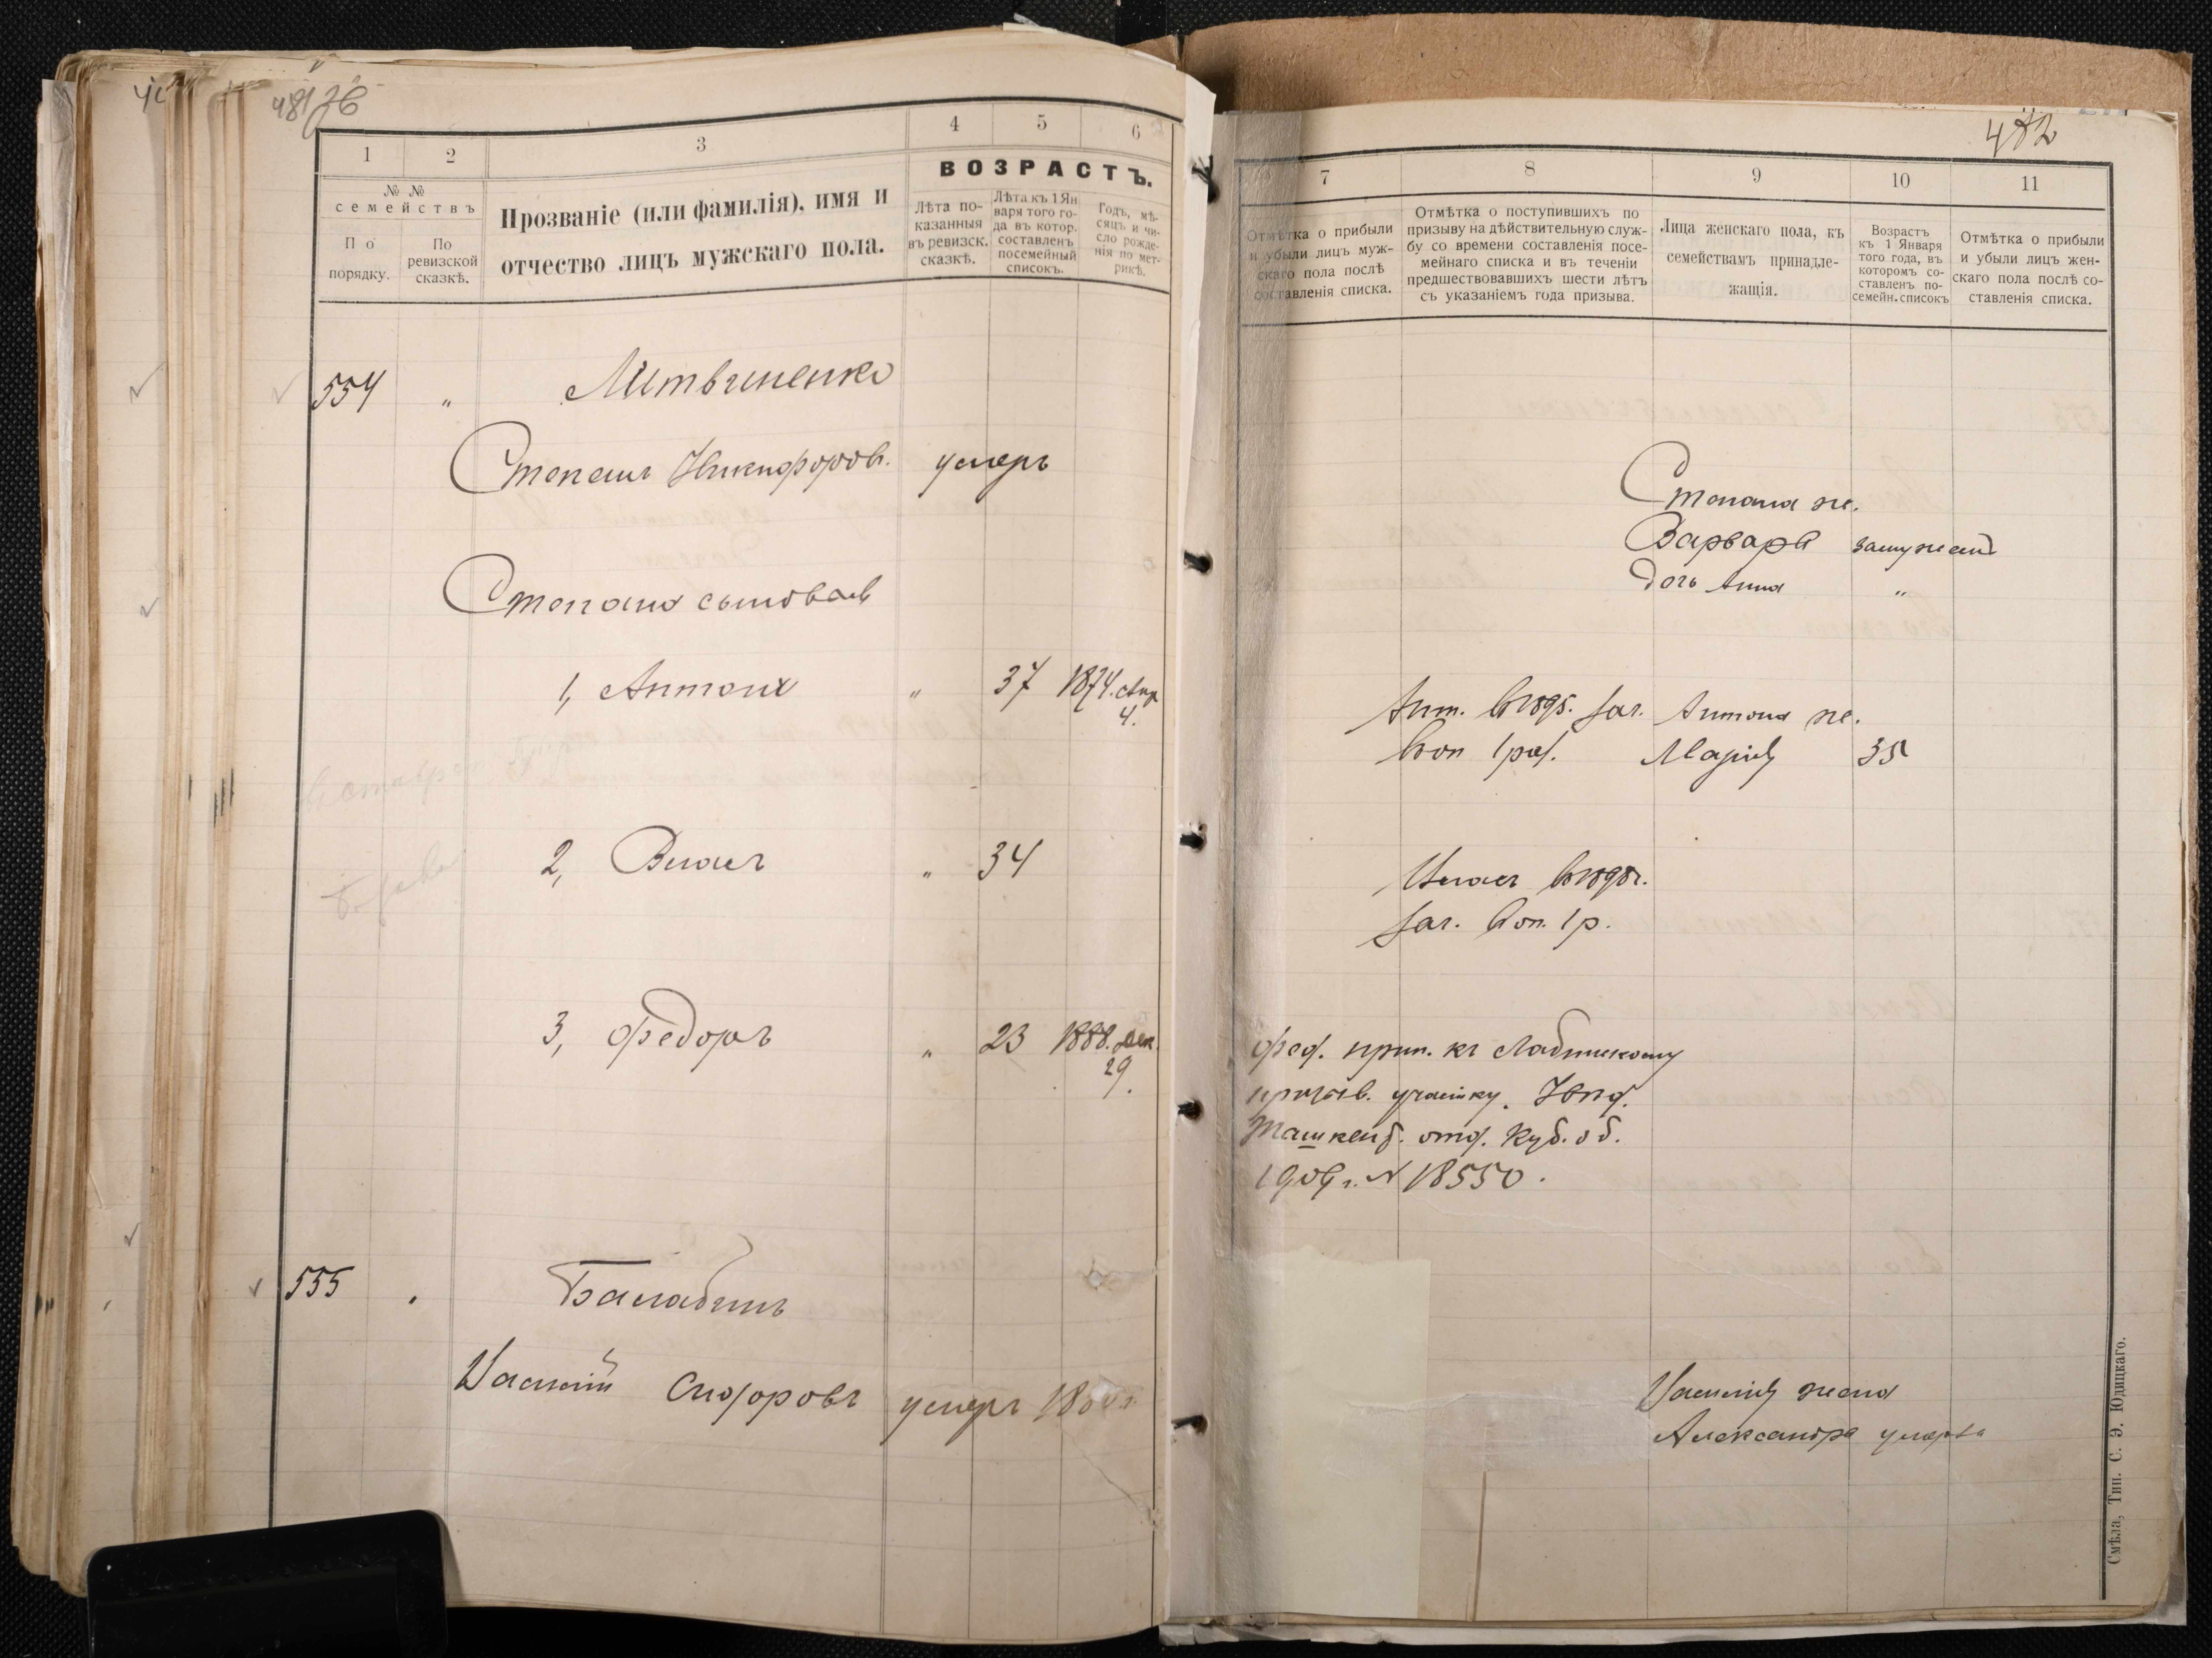 481 об
1 2 3 4 5 6
№ №
семействъ
По порядку.
По ревизской сказкѣ.
Прозваніе (или фамилія), имя и
отчество лицъ мужскаго пола.
ВОЗРАСТЪ.
Лѣта по-
казанныя
въ ревизск.
сказкѣ.
Лѣта къ 1 Ян
варя того го-
да въ котор.
составленъ
посемейный
списокъ.
Годъ, мѣ-
сяцъ и чи-
сло рожде-
нія по мет-
рикѣ.
554 „ Литвиненко
Степанъ Никифоров. умеръ
Степана сыновья
1, Антонъ „ 37 1874. Апр
4.
2, Власъ „ 34
3, Федоръ „ 23 1888. Дек.
29.
555 Балабинъ
Василій Сидоровъ умеръ
482
7 8 9 10 11
Отмѣтка о прибыли
и убыли лицъ муж-
скаго пола послѣ
составленія списка.
Отмѣтка о поступившихъ по
призыву на дѣйствительную служ-
бу со времени составленія посе-
мейнаго списка и въ теченіи
предшествовавшихъ шести лѣтъ
съ указаніемъ года призыва.
Лица женскаго пола, къ
семействамъ принадле-
жащія.
Возрастъ
къ 1 Января
того года, въ
которомъ со-
ставленъ по-
семейн. списокъ
Отмѣтка о прибыли
и убыли лицъ жен-
скаго пола послѣ со-
ставленія списка.
Степана ж.
Варвара замужем
дочь Анна „
Ант. въ 1895. зач. Антона ж.
въ оп 1 раз. Марія 35
Власъ въ
зач. в оп. 1 р.
Фед. прип. къ Лабинскому
призыв. участку.
отд. Куб. об.
1909 г. N 18550.
Василія жена
Александра умерла
Смѣла, Тип. С. Э. Юдицкаго.